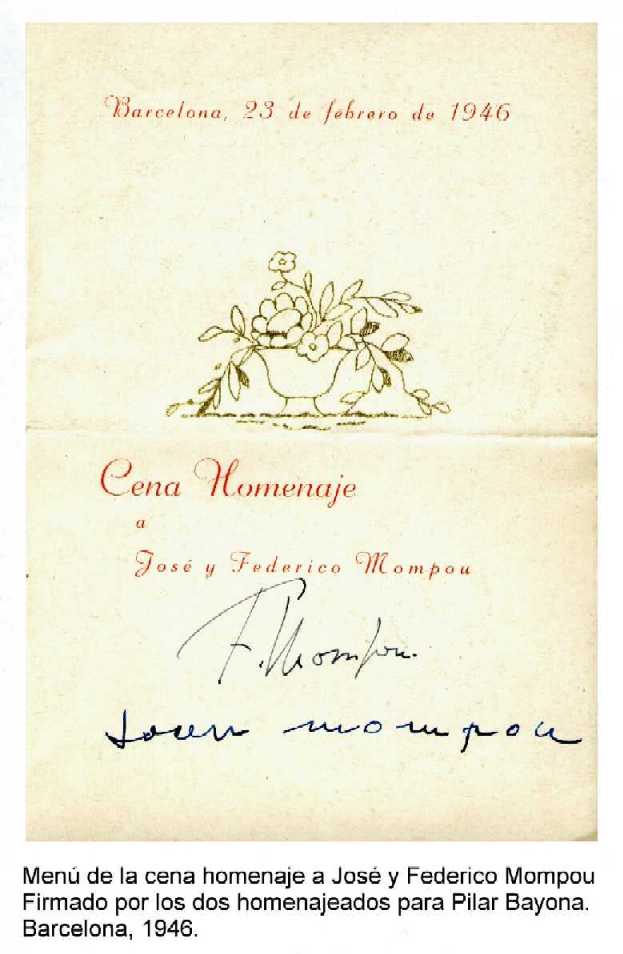 Barcelona, 23 de febrero de 1946
Cena Homenaje
a
José y Federico Mompou
F. Mompou.
mompou
Menú de la cena homenaje a José y Federico Mompou
Firmado por los dos homenajeados para Pilar Bayona.
Barcelona, 1946.